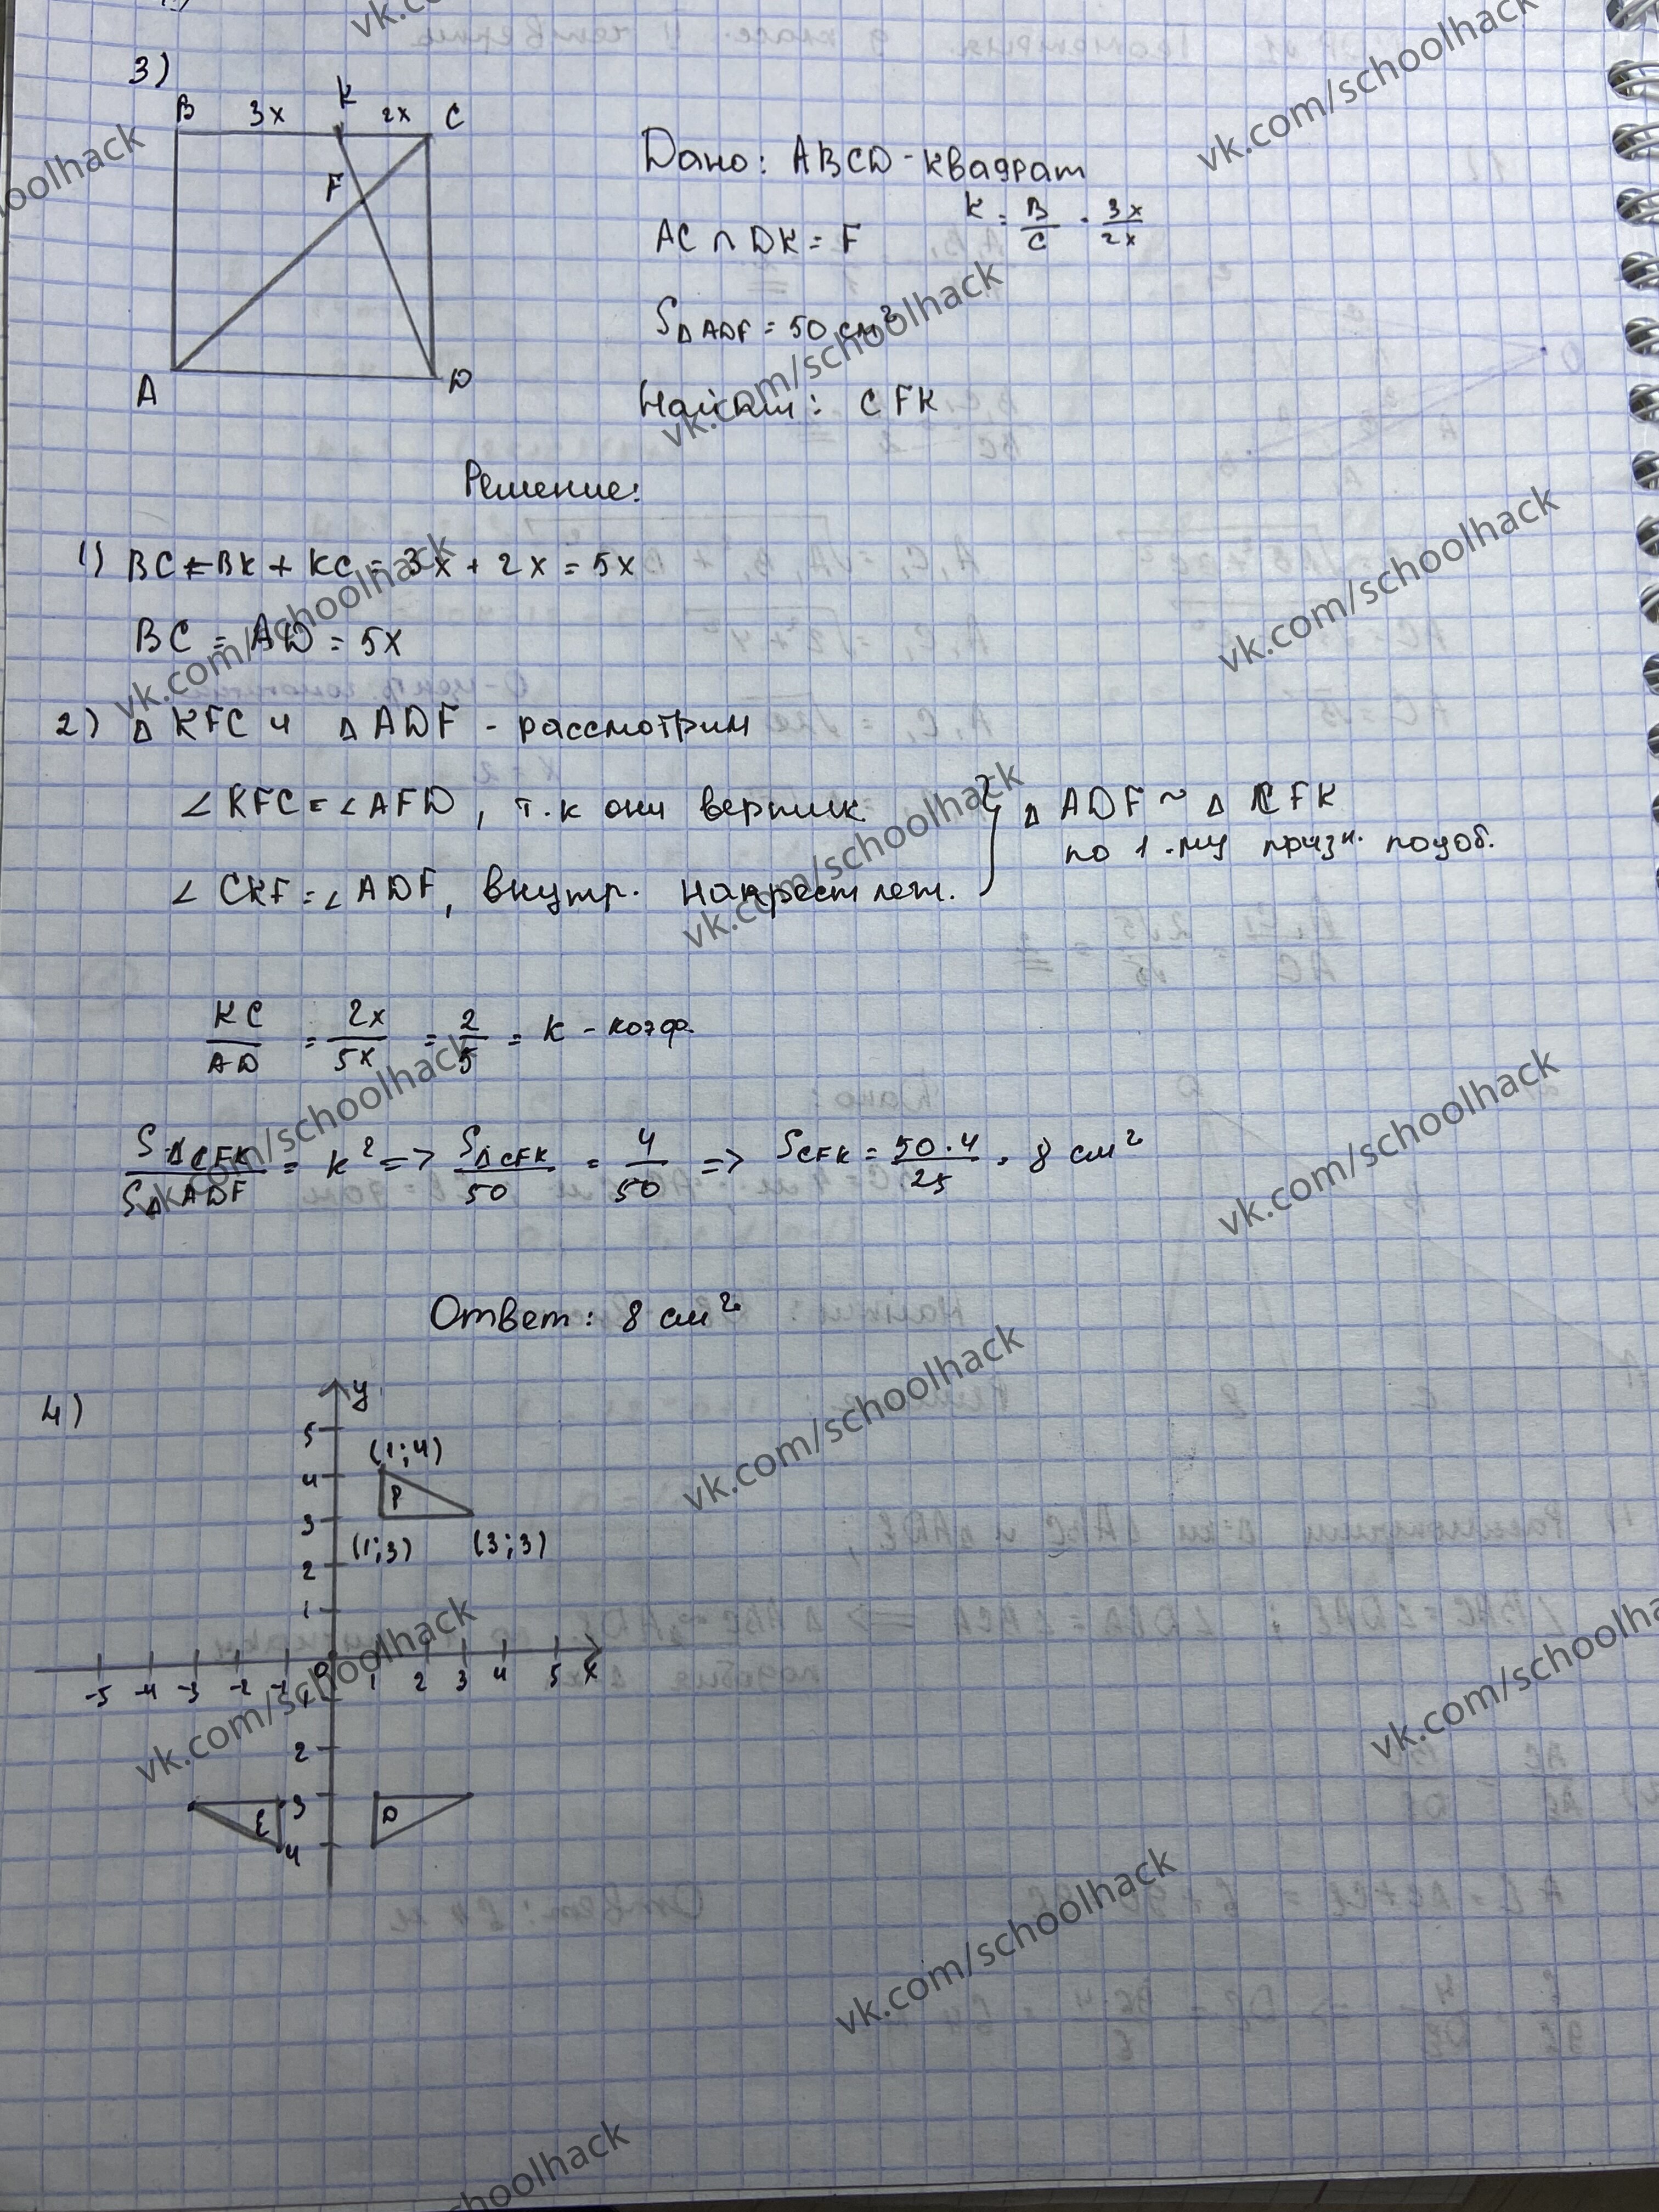 3)
B 3x K 2x C
F
A D
Дано: ABCD - квадрат
AC ∩ DK = F K = B/C = 3x/2x
S△ADF = 50 см²
Найти: CFK
Решение:
1) BC = BK + KC = 3x + 2x = 5x
BC = AD = 5x
2) △ KFC и △ ADF - рассмотрим
∠KFC = ∠AFD, т.к они вертик.
∠CKF = ∠ADF, внутр. накрест леж.
} △ ADF ~ △ CFK
по 1-му призн. подоб.
KC/AD = 2x/5x = 2/5 = k - коэф.
S△CFK/S△ADF = k² => S△CFK/50 = 4/50 => SCFK = 50·4/25 = 8 см²
Ответ: 8 см²
4)
y
5
(1;4)
4
P
3
(1;3) (3;3)
2
1
-5 -4 -3 -2 -1 0 1 2 3 4 5 x
1
2
3
E D
4
vk.com/schoolhack
vk.com/schoolhack
vk.com/schoolhack
vk.com/schoolhack
vk.com/schoolhack
vk.com/schoolhack
vk.com/schoolhack
vk.com/schoolhack
vk.com/schoolhack
vk.com/schoolhack
vk.com/schoolhack
vk.com/schoolhack
vk.com/schoolhack
schoolhack